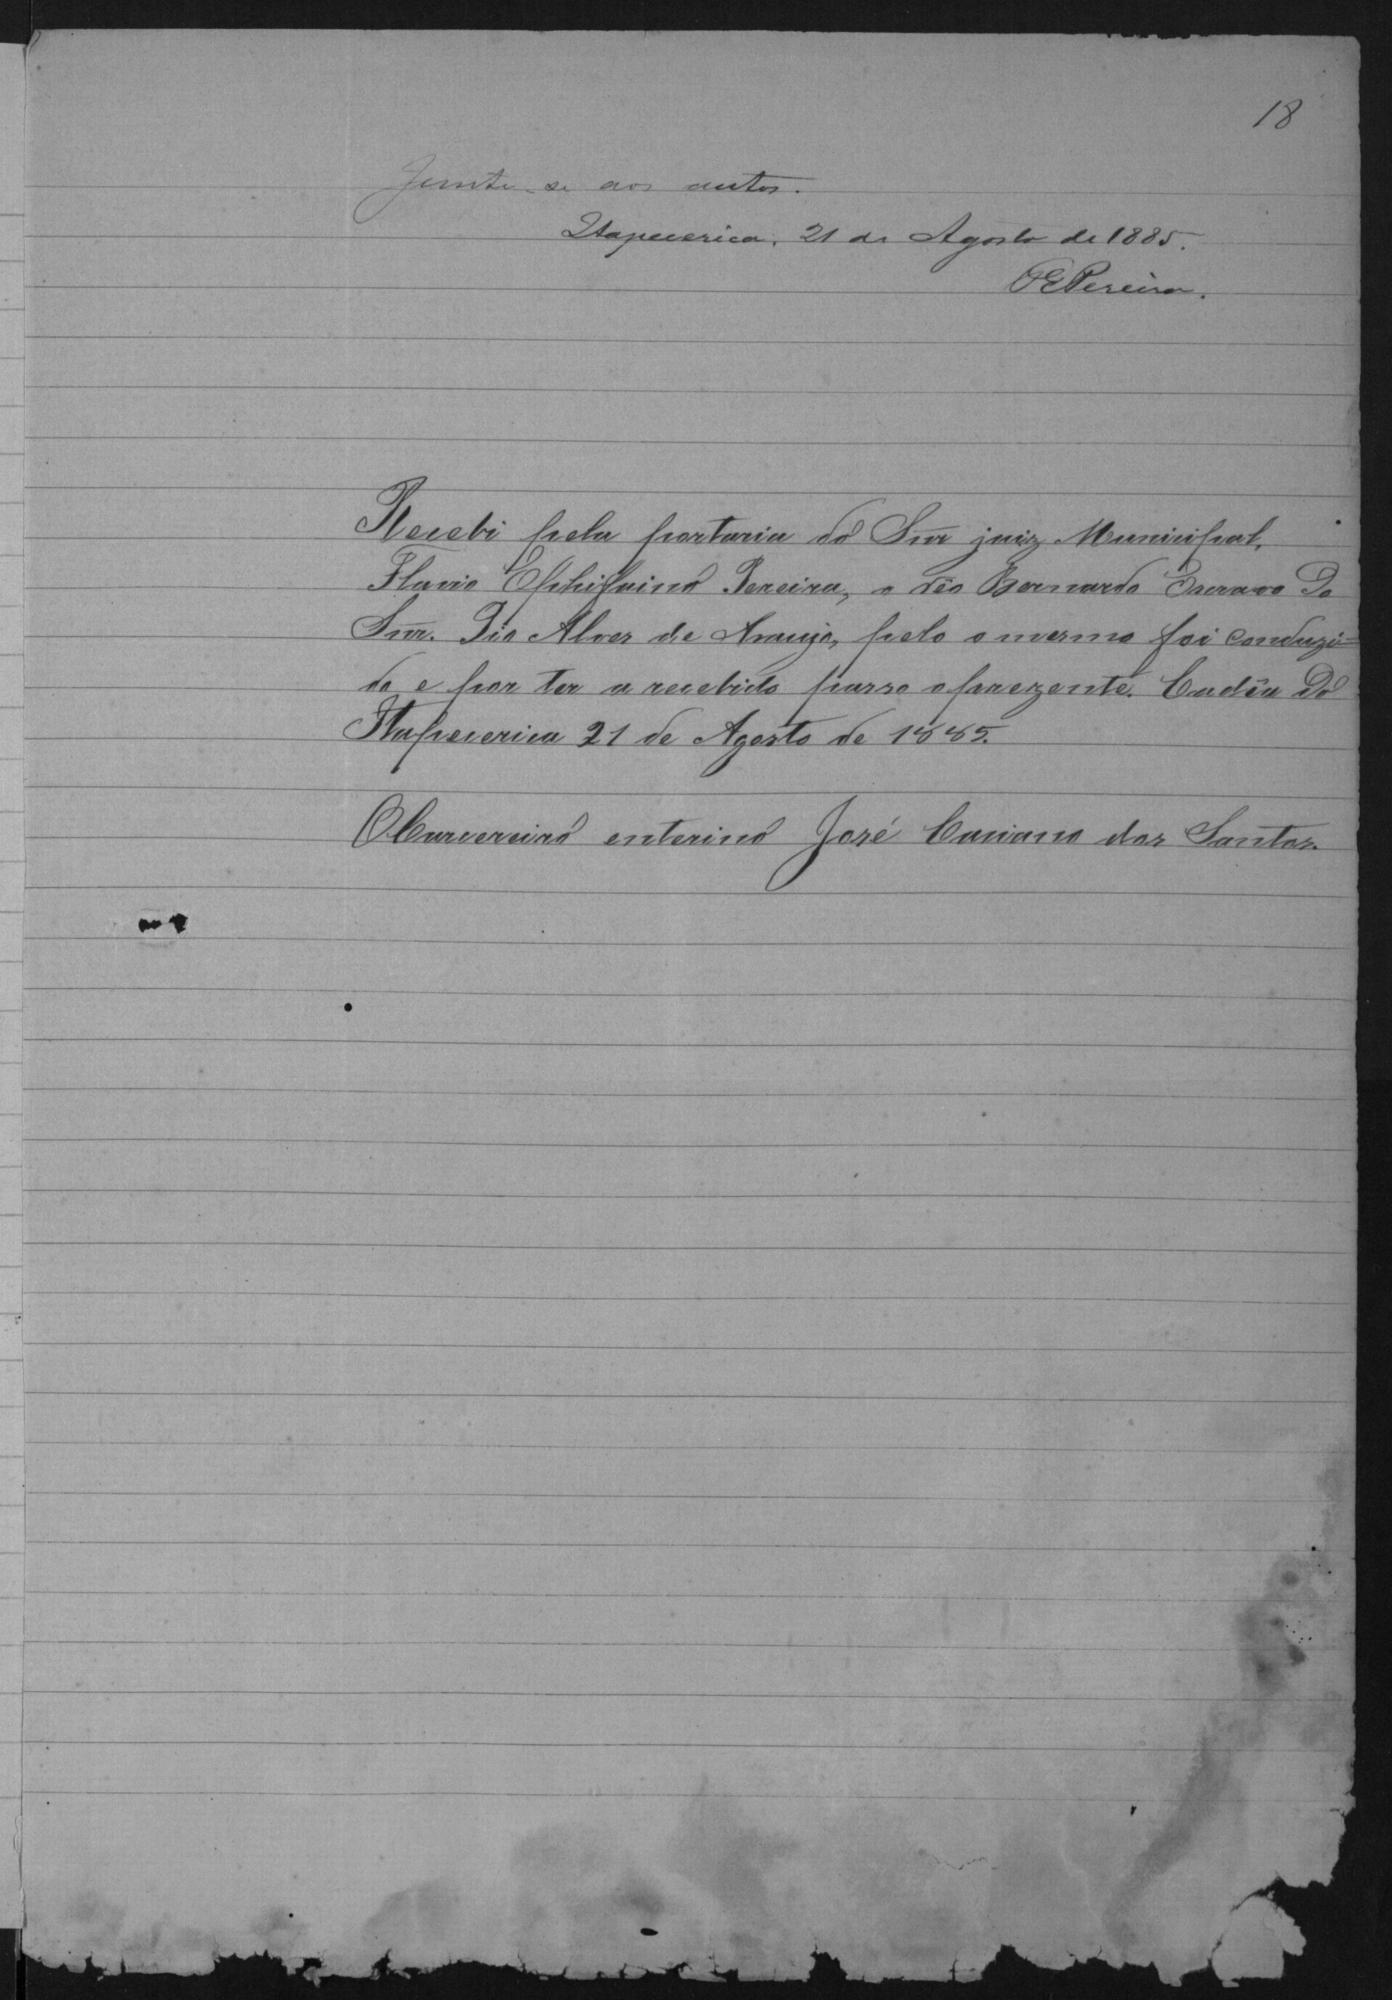 18
Junte-se aos autos.
Itapecerica, 21 de Agosto de 1885.
F E Pereira.
Recebi pela portaria do Snr juiz Municipal,
Flavio Pereira, o réo Bernardo Escravo Do
Snr. Pio Alves de Araujo, pelo o mesmo foi conduzi=
do e por ter a recebido passo o prezente. Cadêa Do
Itapecerica 21 de Agosto de 1885.
O Carcereiro enterino José dos Santos.